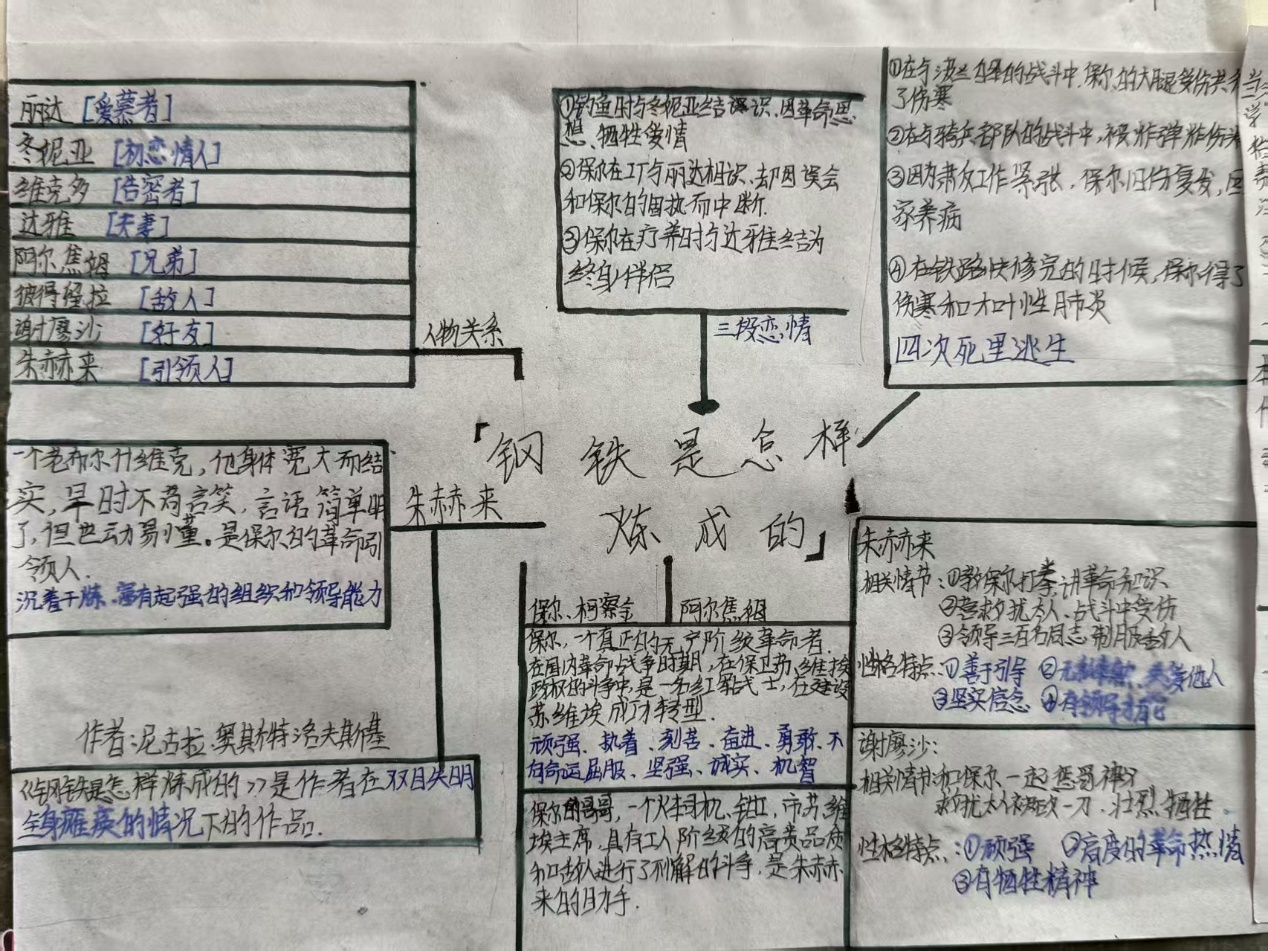 丽达 [爱慕者]
冬妮亚 [初恋情人]
维克多 [告密者]
达雅 [夫妻]
阿尔焦姆 [兄弟]
彼得留拉 [敌人]
谢廖沙 [好友]
朱赫来 [引领人]
人物关系
①钓鱼时与冬妮亚结识,因革命思
想、牺牲爱情
②保尔在工厂与丽达相识、却因误会
和保尔的固执而中断.
③保尔在疗养时与达雅结为
终身伴侣
三段恋情
①在与波兰白军的战斗中,保尔的大腿受伤
了伤寒
②在与骑兵部队的战斗中,被炸弹炸伤头
③因为肃反工作紧张,保尔旧伤复发,回
家养病
④在铁路快修完的时候,保尔得了
伤寒和大叶性肺炎
四次死里逃生
「钢铁是怎样
炼成的」
一个老布尔什维克,他身体宽大而结
实,平时不苟言笑,言语简单明
了,但生动易懂。是保尔的革命引
领人.
沉着干炼、富有起强的组织和领导能力
朱赫来
作者:尼古拉.奥斯特洛夫斯基
《钢铁是怎样炼成的》是作者在双目失明
全身瘫痪的情况下的作品.
保尔、柯察金
阿尔焦姆
保尔,一个真正的无产阶级革命者.
在国内革命战争时期,在保卫苏维埃
政权的斗争中,是一名红军战士,在建设
苏维埃成功转型.
顽强、执着、刻苦、奋进、勇敢、不
向命运屈服、坚强、诚实、机智
保尔的哥哥,一个火车司机、钳工,市苏维
埃主席,具有工人阶级的高贵品质
和敌人进行了不懈的斗争,是朱赫
来的助手.
朱赫来
相关情节:①教保尔打拳,讲革命知识
②营救犹太人、战斗中受伤
③领导三百名同志制服敌人
性格特点:①善于引导 ②无私奉献、关爱他人
③坚实信念 ④有领导才能
谢廖沙:
相关情节:和保尔一起惹哥神父
救犹太人被砍一刀.壮烈牺牲
性格特点:①顽强 ②高度的革命热情
③有牺牲精神